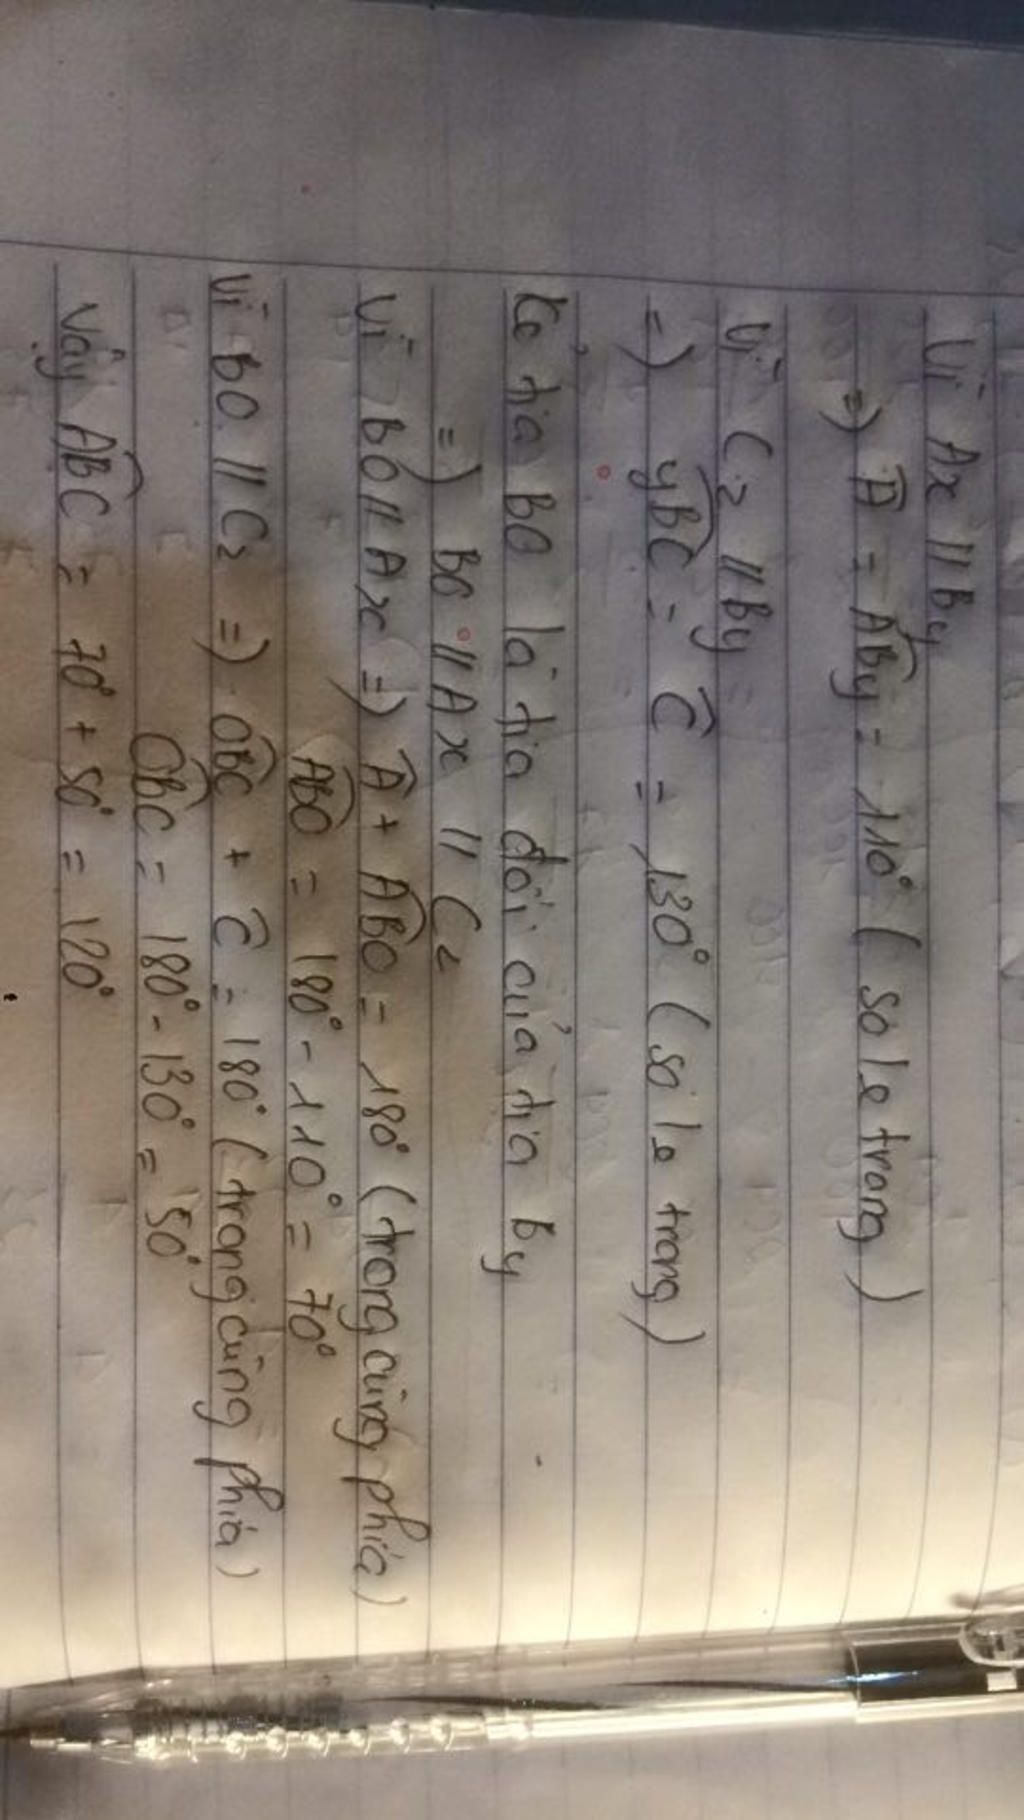 Vì Ax // By
=) Â = ABy = 110° (so le trong)
Vì Cz // By
=) yBC = Ĉ = 130° (so le trong)
Kẻ tia BO là tia đối của tia By
=) BO // Ax // Cz
Vì BO // Ax =) Â + ABO = 180° (trong cùng phía)
ABO = 180° - 110° = 70°
Vì BO // Cz =) OBC + Ĉ = 180° (trong cùng phía)
OBC = 180° - 130° = 50°
Vậy ABC = 70° + 50° = 120°